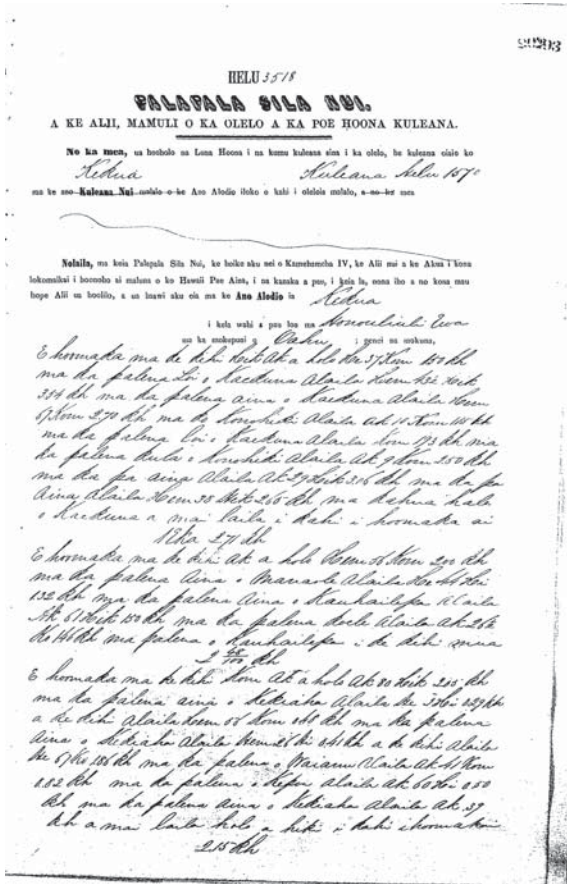 HELU 3518
PALAPALA SILA NUI.
A KE ALII, MAMULI O KA OLELO A KA POE HOONA KULEANA.
No ka mea, ua hooholo na Luna Hoona i na kumu kuleana aina i ka olelo, he kuleana oiaio ko
Kekua Kuleana Helu 1570
ma ke ano Kuleana Nui malalo o ke Ano Alodio iloko o kahi i oleloia malalo, a no ka mea
Nolaila, ma keia Palapala Sila Nui, ke hoike aku nei o Kamehameha IV, ke Alii nui a ke Akua i kona
lokomaikai i hoonoho ai maluna o ko Hawaii Pae Aina, i na kanaka a pau, i keia la, nona iho a no kona mau
hope Alii ua hoolilo, a ua haawi aku oia ma ke Ano Alodio ia Kekua
i kela wahi a pau loa ma Honouliuli Ewa
ma ka mokupuni o Oahu ; penei na mokuna,
E hoomaka ma ke kihi Hik Ak a holo He 37 Kom 150 Kh
ma ka palena Loi o Kaekuna Alaila Hem Hik
334 Kh ma ka palena aina o Kaekuna Alaila Hem
67 Kom 270 Kh ma ko Konohiki Alaila Ak Kom Kh
ma ka palena loi o Kaekuna Alaila Kom 173 Kh ma
ka palena kula o Konohiki Alaila Ak 9 Kom 250 Kh
ma ka pa aina Alaila Ak 29 Hik 316 Kh ma ka pa
Aina Alaila Hem 38 Hik 265 Kh ma kahua hale
o Kaekuna a mai laila i kahi i hoomaka ai
1 Eka 271 Kh
E hoomaka ma ke kihi Ak a holo Hem Kom 200 Kh
ma ka palena Aina o Manaole Alaila
132 Kh ma ka palena Aina o Kauhailepa Alaila
Ak 61 Hik 150 Kh ma ka palena Alaila Ak
146 Kh ma palena o Kauhailepa i ke kihi mua
2 48/100 Kh
E hoomaka ma ke kihi Kom Ak a holo Ak 80 Hik 205 Kh
ma ka palena aina o Kekiaha Alaila He 029 Kh
a ke kihi Alaila Hem Kom 048 Kh ma ka palena
Aina o Kekiaha Alaila Hem 041 Kh a ke kihi Alaila
He 67 Ko 186 Kh ma ka palena o Waianu Alaila Ak 41 Kom
082 Kh ma ka palena o Kepoi Alaila Ak 60 050
Kh ma ka palena aina o Kekiaha Alaila Ak 39
Kh a mai laila holo a hiki i kahi i hoomaka ai
215 Kh